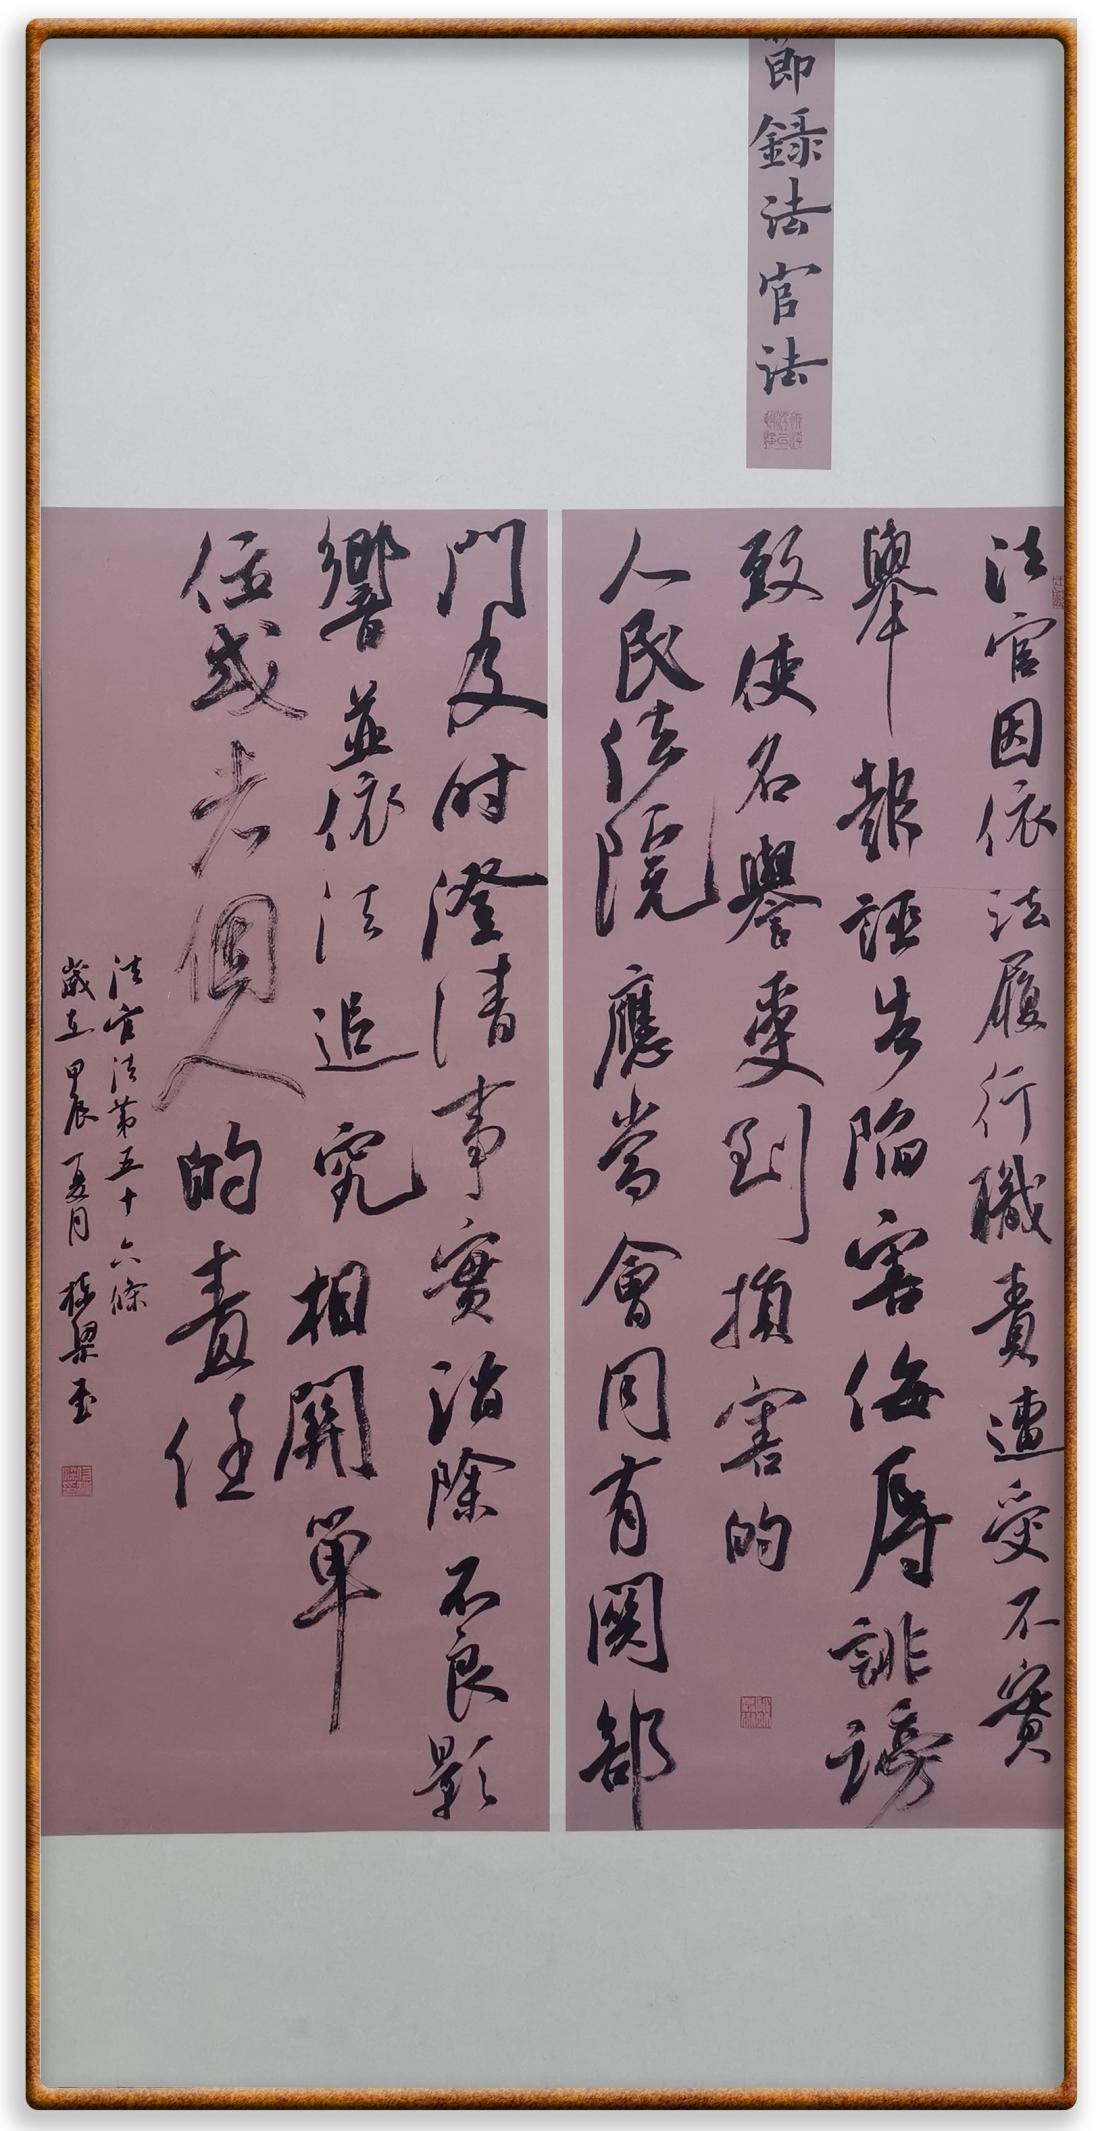 節錄法官法
法官因依法履行職責遭受不實
舉報誣告陷害侮辱誹謗
致使名譽受到損害的
人民法院應當會同有関部
門及时澄清事實消除不良影
響並依法追究相関單
位或者個人的責任
法官法第五十六條
歲在甲辰夏月棟梁